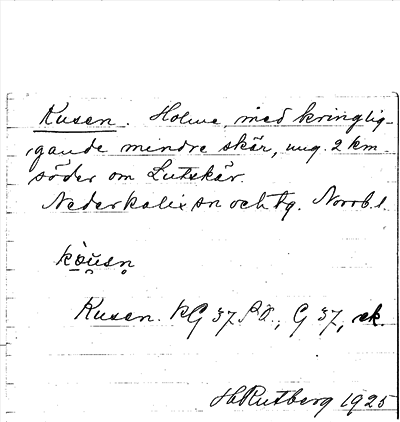 Kusen. Holme, med kringlig-
gande mindre skär, ung. 2 km
söder om Lutskär.
Nederkalix sn och tg. Norrb. l.
Kusen. KG 37 SO., G 37, ek.
H Rutberg 1925